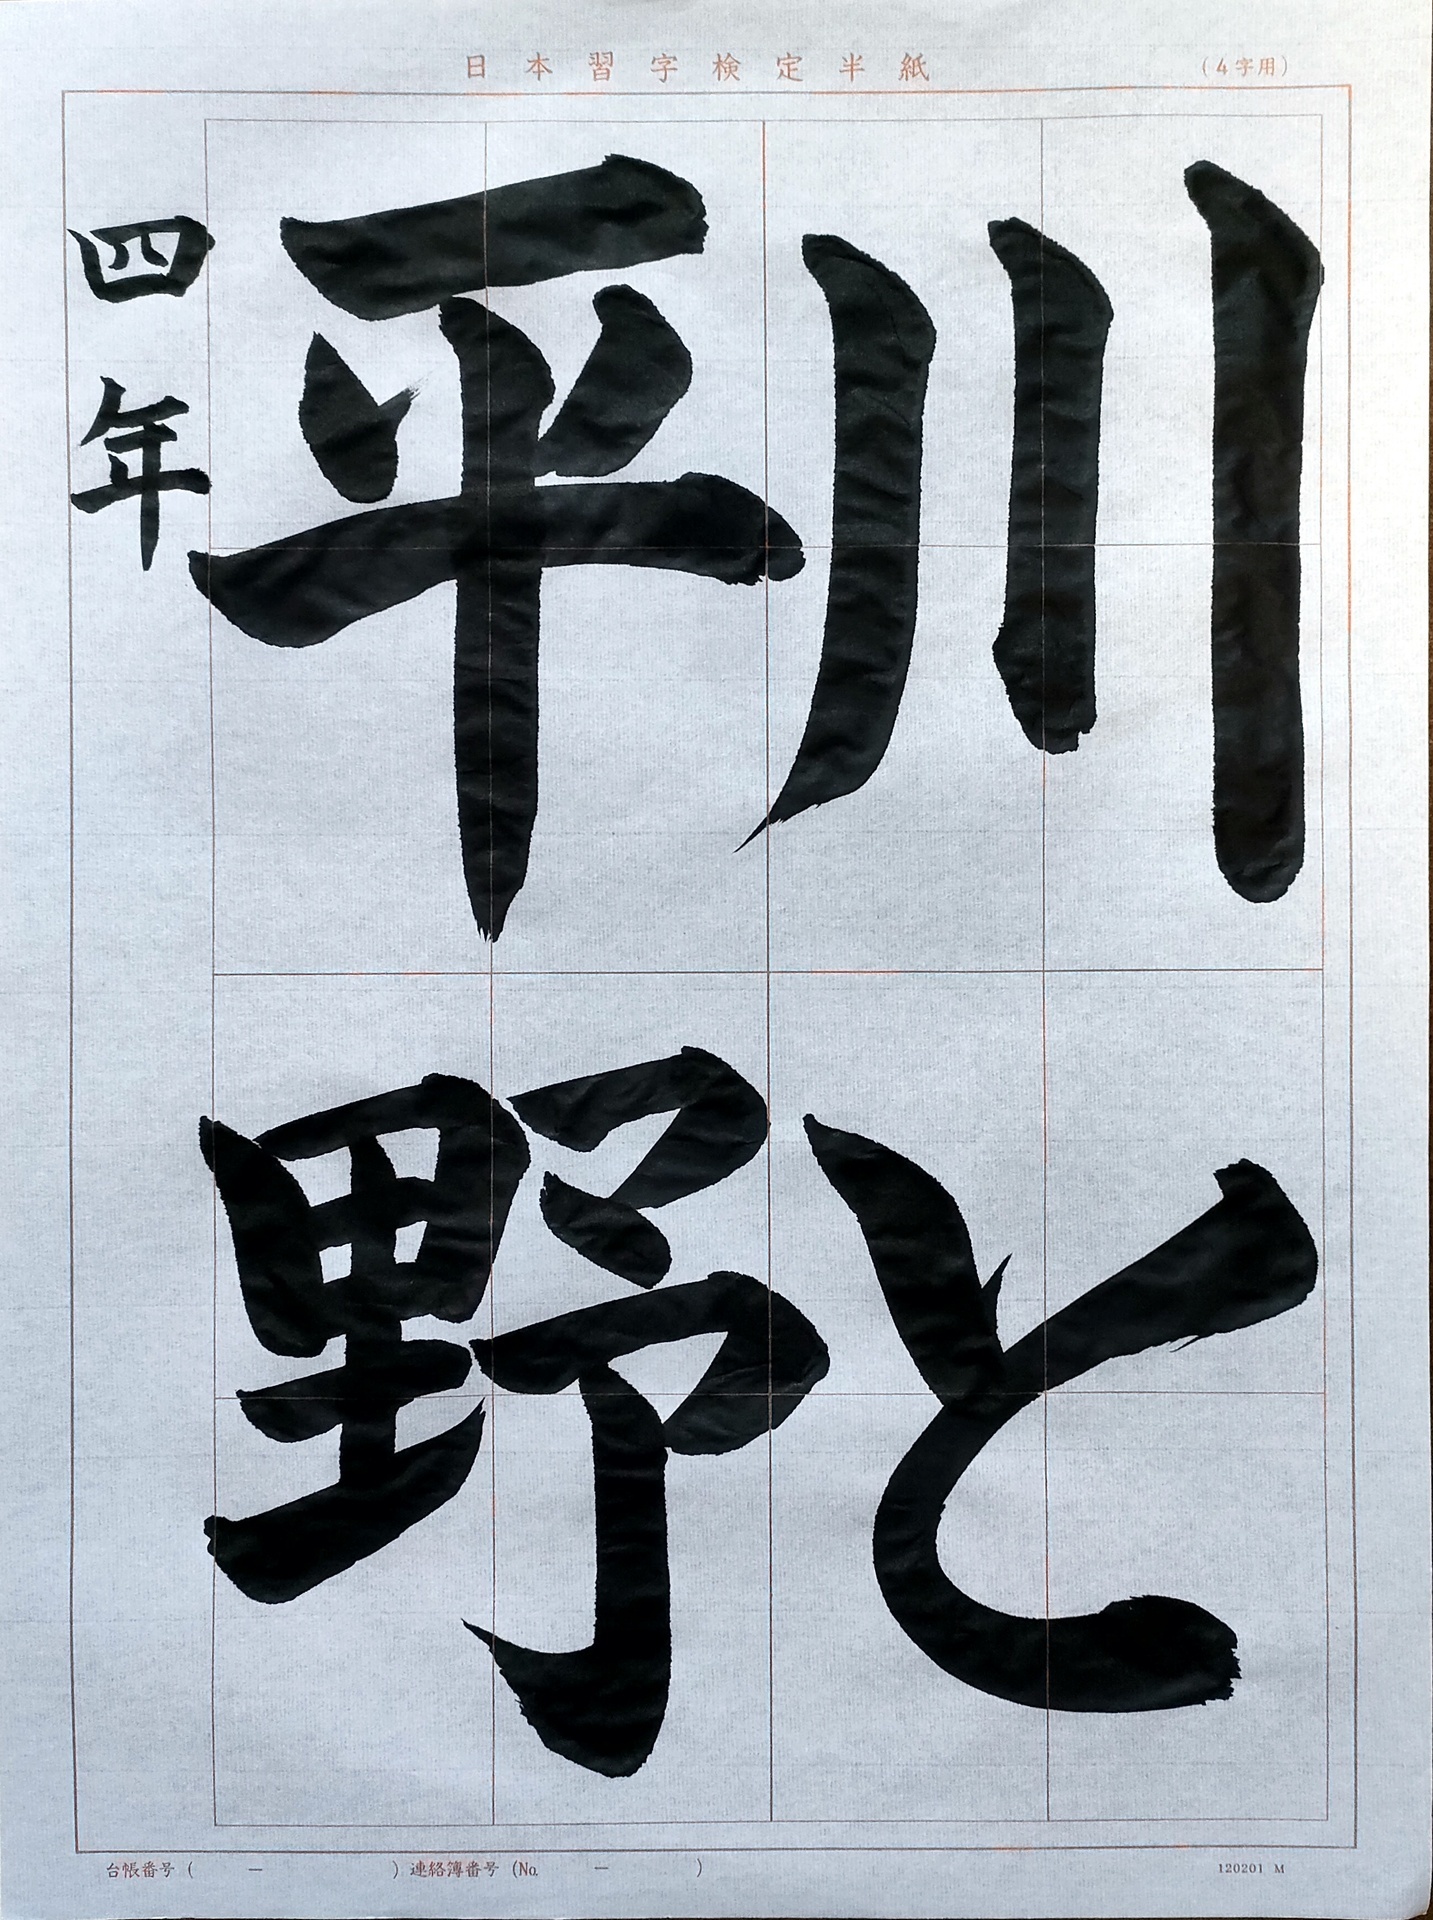 日本習字検定半紙
(4字用)
川と
平野
四年
台帳番号( － )連絡簿番号(No. － )
120201 M